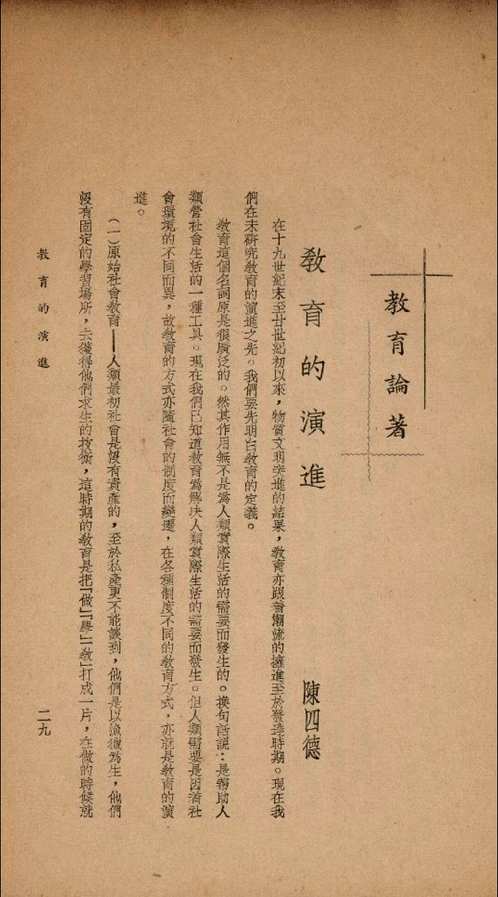 教育論著
教育的演進
陳四德
在十九世紀末至廿世紀初以來，物質文明突進的結果，教育亦跟着潮流的擁進至於發達時期。現在我
們在未研究教育的演進之先。我們要先明白教育的定義。
教育這個名詞原是很廣泛的。然其作用無不是為人類實際生活的需要而發生的。換句話說：是幫助人
類營社會生活的一種工具。現在我們已知道教育為解决人類實際生活的需要而發生。但人類需要是因着社
會環境的不同而異，故教育的方式亦隨社會的制度而變遷，在各種制度不同的教育方式，亦就是教育的演
進。
（一）原始社會教育——人類最初社會是沒有資產的，至於私產更不能談到，他們是以漁獵為生，他們
沒有固定的學習場所，去獲得他們求生的技術，這時期的教育是把「做」「學」「教」打成一片，在做的時候就
教育的演進
二九